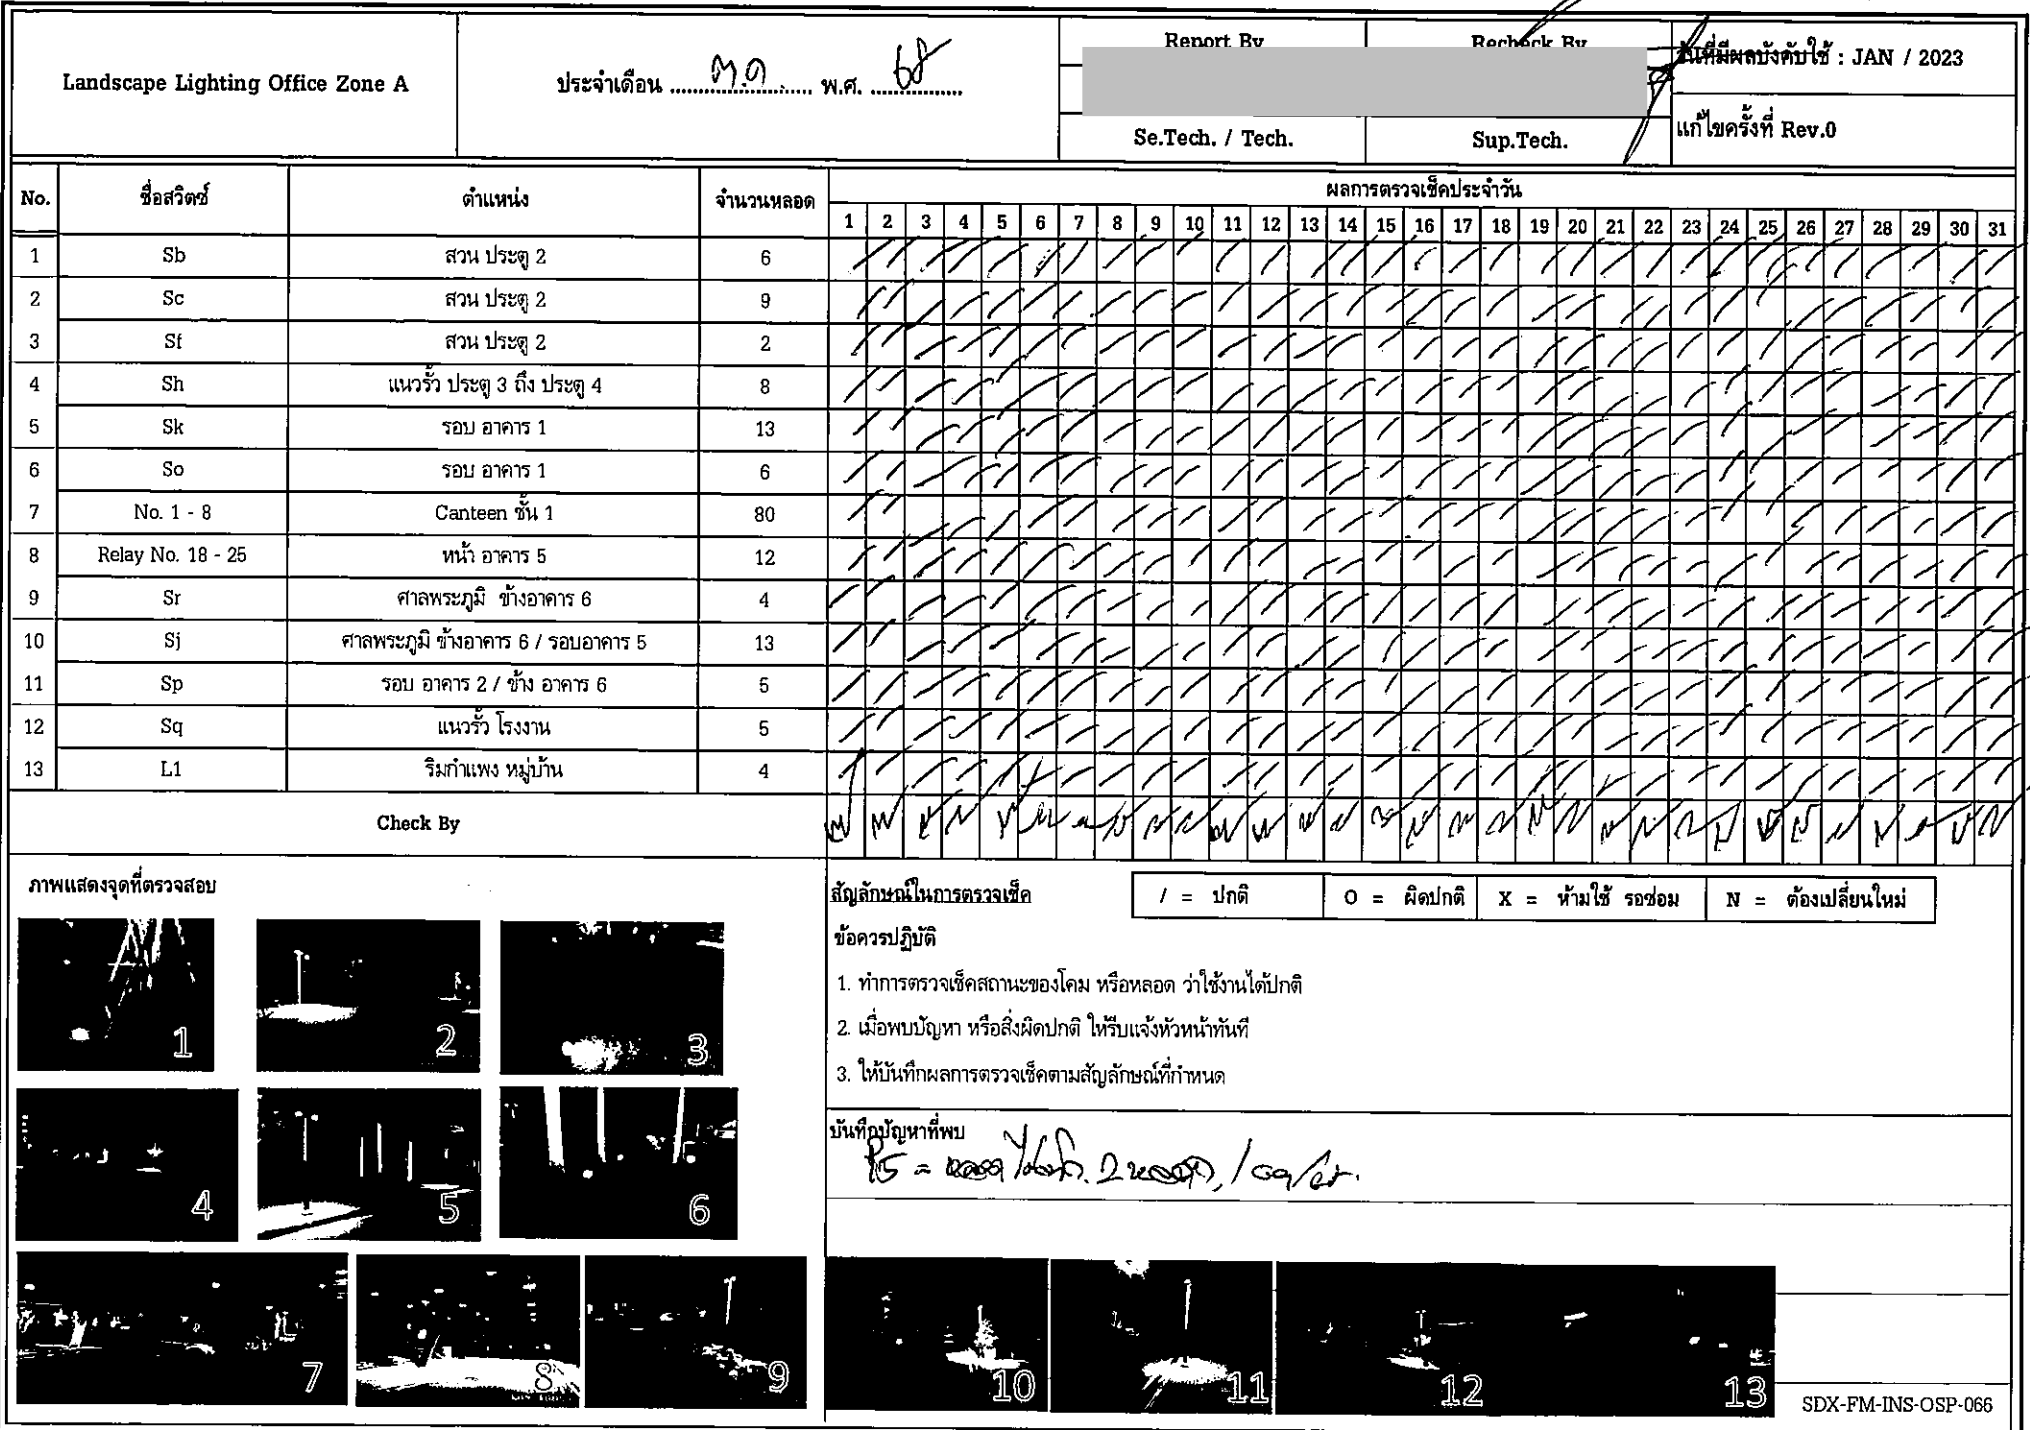 Landscape Lighting Office Zone A
ประจำเดือน ต.ค. พ.ศ. 68
Report By
Recheck By
วันที่มีผลบังคับใช้ : JAN / 2023
Se.Tech. / Tech.
Sup.Tech.
แก้ไขครั้งที่ Rev.0
No. ชื่อสวิตซ์ ตำแหน่ง จำนวนหลอด ผลการตรวจเช็คประจำวัน
1 2 3 4 5 6 7 8 9 10 11 12 13 14 15 16 17 18 19 20 21 22 23 24 25 26 27 28 29 30 31
1 Sb สวน ประตู 2 6 / / / / / / / / / / / / / / / / / / / / / / / / / / / / / / /
2 Sc สวน ประตู 2 9 / / / / / / / / / / / / / / / / / / / / / / / / / / / / / / /
3 Sf สวน ประตู 2 2 / / / / / / / / / / / / / / / / / / / / / / / / / / / / / / /
4 Sh แนวรั้ว ประตู 3 ถึง ประตู 4 8 / / / / / / / / / / / / / / / / / / / / / / / / / / / / / / /
5 Sk รอบ อาคาร 1 13 / / / / / / / / / / / / / / / / / / / / / / / / / / / / / / /
6 So รอบ อาคาร 1 6 / / / / / / / / / / / / / / / / / / / / / / / / / / / / / / /
7 No. 1 - 8 Canteen ชั้น 1 80 / / / / / / / / / / / / / / / / / / / / / / / / / / / / / / /
8 Relay No. 18 - 25 หน้า อาคาร 5 12 / / / / / / / / / / / / / / / / / / / / / / / / / / / / / / /
9 Sr ศาลพระภูมิ ข้างอาคาร 6 4 / / / / / / / / / / / / / / / / / / / / / / / / / / / / / / /
10 Sj ศาลพระภูมิ ข้างอาคาร 6 / รอบอาคาร 5 13 / / / / / / / / / / / / / / / / / / / / / / / / / / / / / / /
11 Sp รอบ อาคาร 2 / ข้าง อาคาร 6 5 / / / / / / / / / / / / / / / / / / / / / / / / / / / / / / /
12 Sq แนวรั้ว โรงงาน 5 / / / / / / / / / / / / / / / / / / / / / / / / / / / / / / /
13 L1 ริมกำแพง หมู่บ้าน 4 / / / / / / / / / / / / / / / / / / / / / / / / / / / / / / /
Check By
ภาพแสดงจุดที่ตรวจสอบ
สัญลักษณ์ในการตรวจเช็ค
/ = ปกติ
O = ผิดปกติ
X = ห้ามใช้ รอซ่อม
N = ต้องเปลี่ยนใหม่
ข้อควรปฏิบัติ
1. ทำการตรวจเช็คสถานะของโคม หรือหลอด ว่าใช้งานได้ปกติ
2. เมื่อพบปัญหา หรือสิ่งผิดปกติ ให้รีบแจ้งหัวหน้าทันที
3. ให้บันทึกผลการตรวจเช็คตามสัญลักษณ์ที่กำหนด
บันทึกปัญหาที่พบ
1 2 3
4 5 6
7 8 9 10 11 12 13
SDX-FM-INS-OSP-066